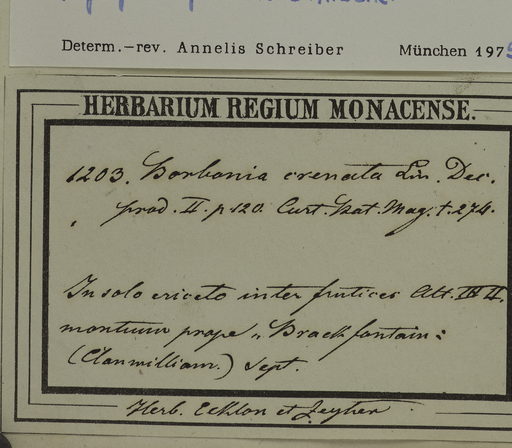 Determ.-rev. Annelis Schreiber München 197
HERBARIUM REGIUM MONACENSE.
1203. Borbonia crenata Lin. Dec.
prod. II. p. 120. Curt. Bot. Mag. t. 274.
In solo ericeto inter frutices Alt. III II.
montium prope „Brackfontain"
(Clanwilliam.) Sept.
Herb. Ecklon et Zeyher